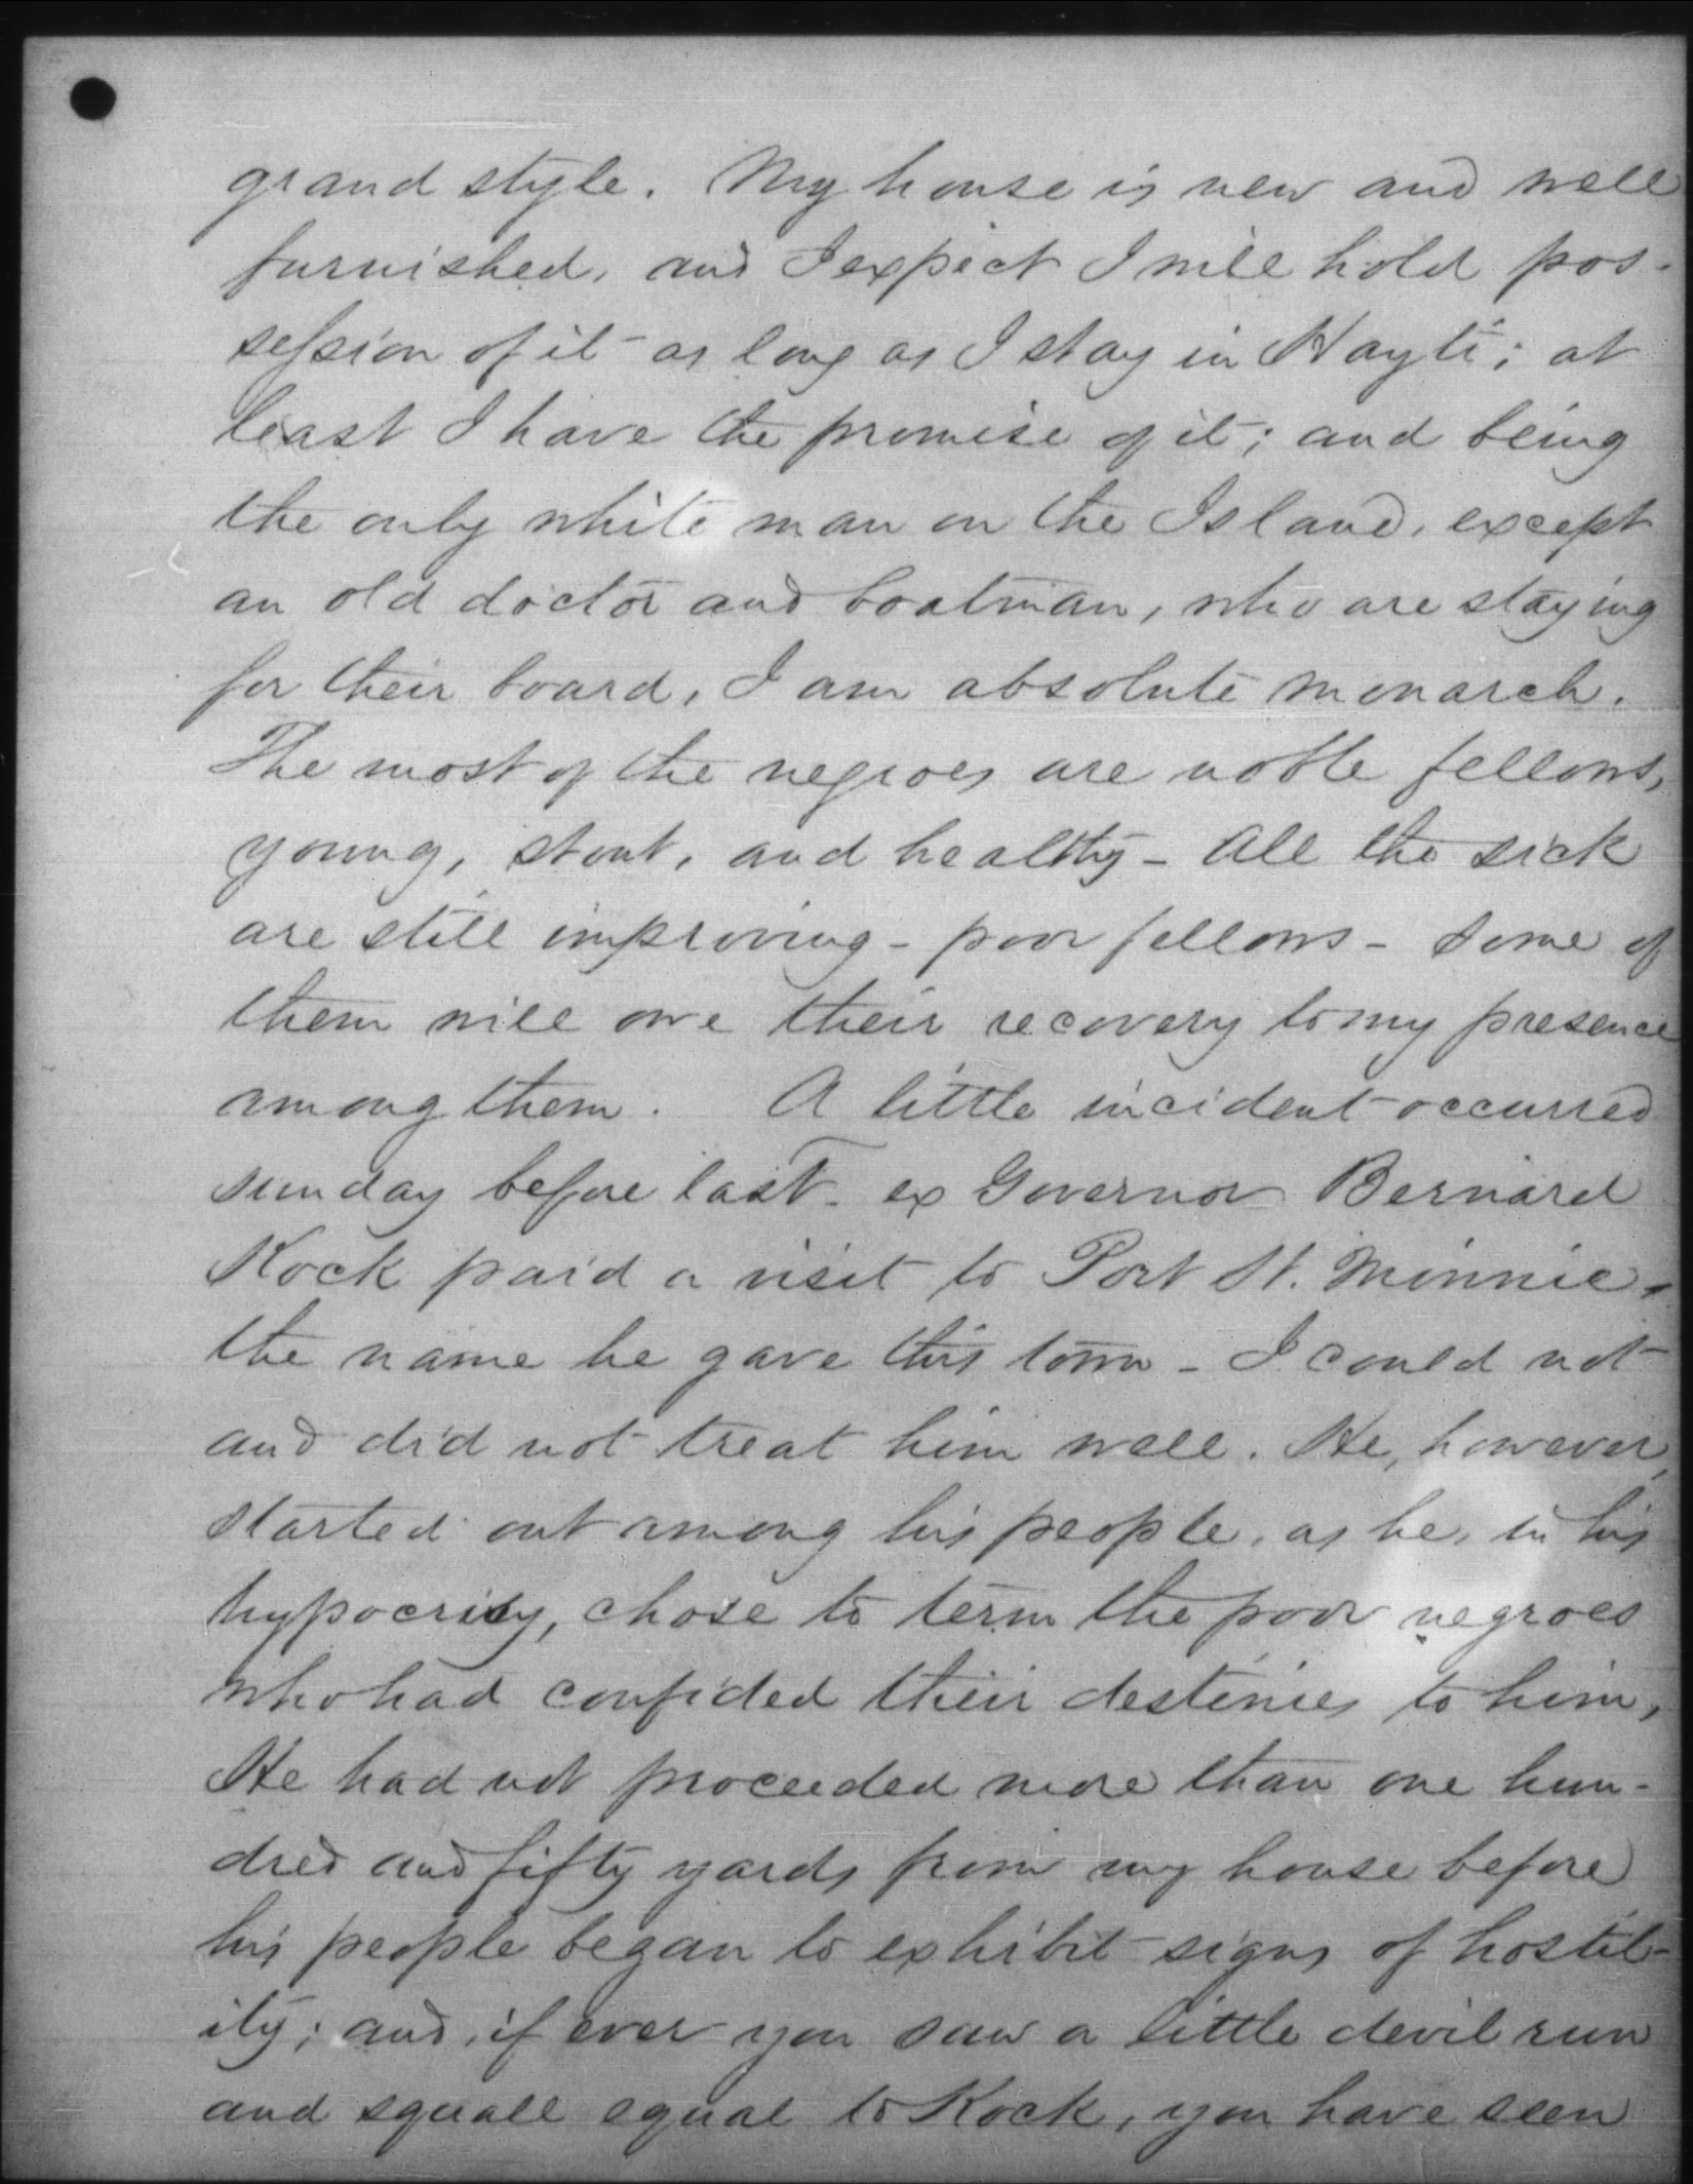 grand style. My house is new and well
furnished, and I expect I will hold pos-
session of it as long as I stay in Hayti; at
least I have the promise of it; and being
the only white man on the Island, except
an old doctor and boatman, who are staying
for their board, I am absolute monarch.
The most of the negroes are noble fellows,
young, stout, and healthy - All the sick
are still improving - poor fellows - some of
them will owe their recovery to my presence
among them. A little incident occurred
sunday before last - ex Governor Bernard
Kock paid a visit to Port St. Minnie,
the name he gave this town - I could not
and did not treat him well. He, however,
started out among his people, as he, in his
hypocrisy, chose to term the poor negroes
who had confided their destinies to him,
He had not proceeded more than one hun-
dred and fifty yards from my house before
his people began to exhibit signs of hostil-
ity; and, if ever you saw a little devil run
and squall equal to Kock, you have seen